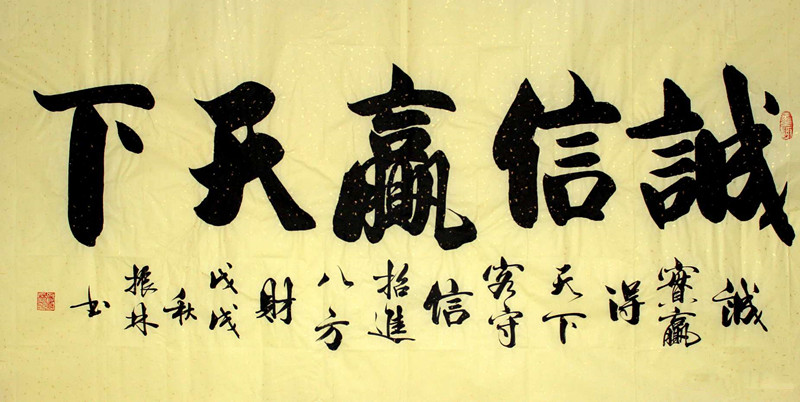 誠信贏天下
誠實贏得天下客守信招進八方財戊戌秋振林书